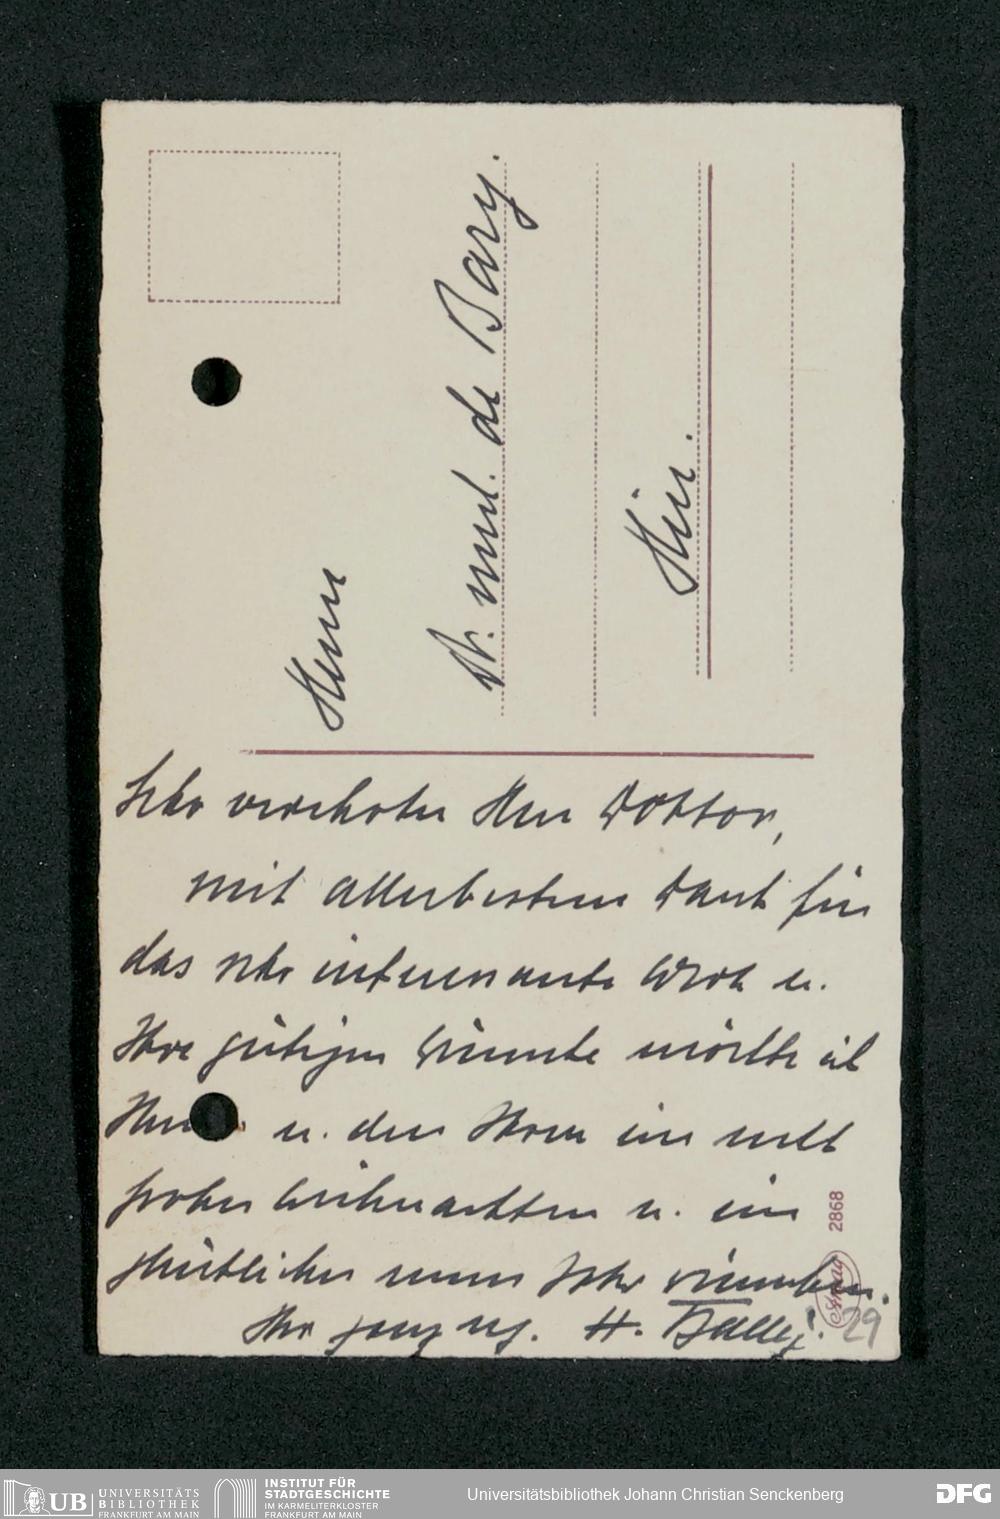 Herrn
Dr. med. de Bary.
Hier.
Sehr verehrter Herr Doktor,
mit allerbestem Dank für
das sehr interessante Werk u.
Ihre gütigen Wünsche möchte ich
Ihnen u. den Ihren ein recht
frohes Weihnachten u. ein
glückliches neues Jahr wünschen.
Ihr ganz erg. H.
29
2868
UB UNIVERSITÄTS
BIBLIOTHEK
FRANKFURT AM MAIN
INSTITUT FÜR
STADTGESCHICHTE
IM KARMELITERKLOSTER
FRANKFURT AM MAIN
Universitätsbibliothek Johann Christian Senckenberg
DFG